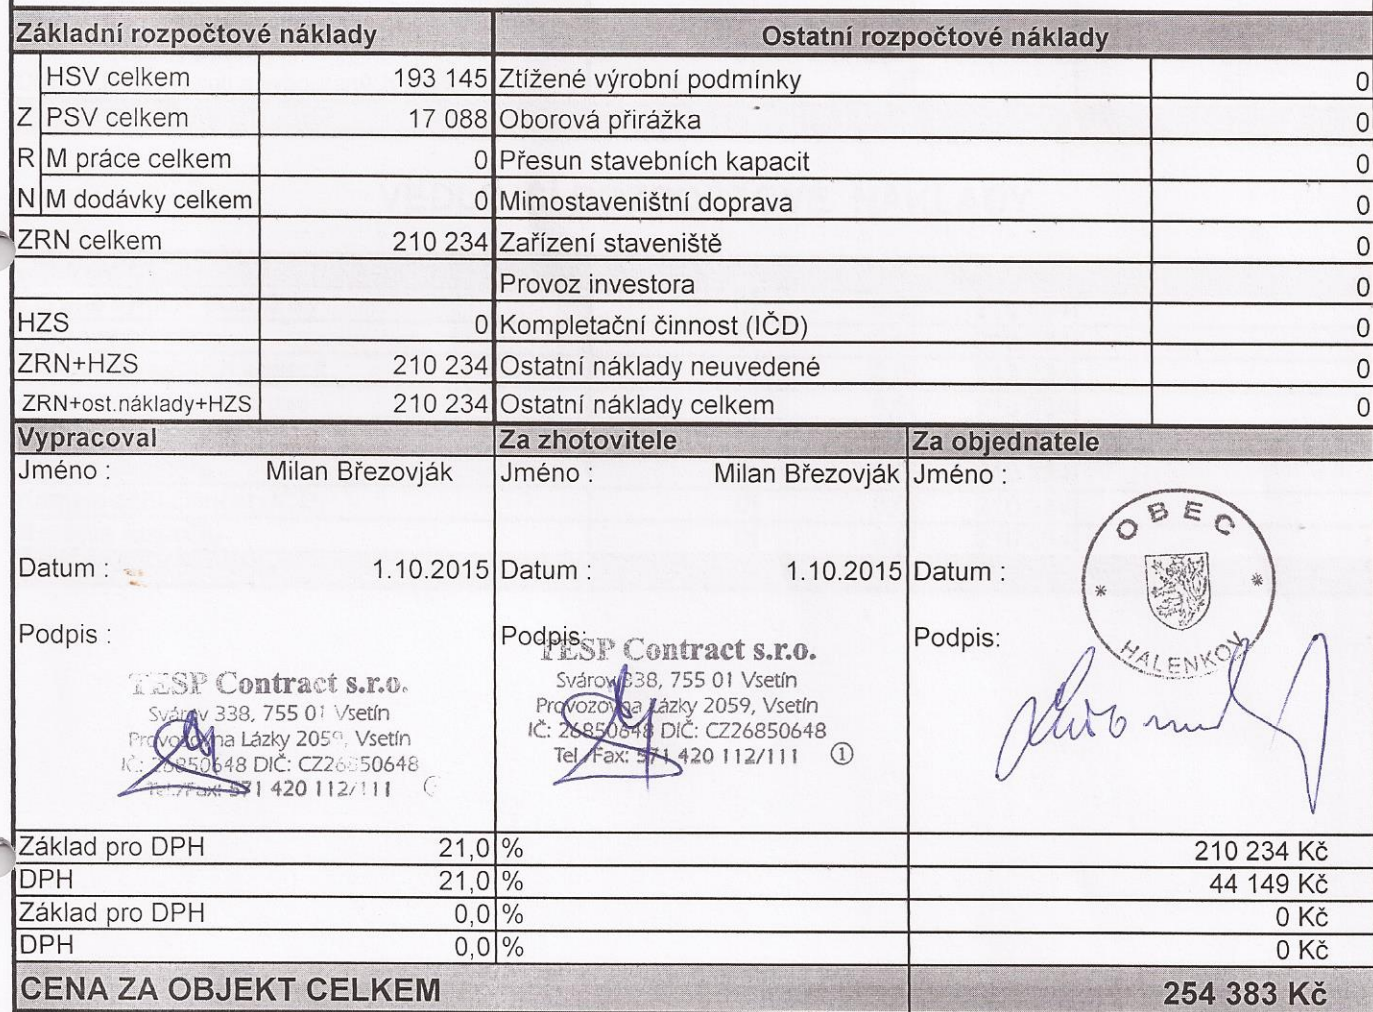 Základní rozpočtové náklady Ostatní rozpočtové náklady
HSV celkem 193 145 Ztížené výrobní podmínky 0
Z PSV celkem 17 088 Oborová přirážka 0
R M práce celkem 0 Přesun stavebních kapacit 0
N M dodávky celkem 0 Mimostaveništní doprava 0
ZRN celkem 210 234 Zařízení staveniště 0
Provoz investora 0
HZS 0 Kompletační činnost (IČD) 0
ZRN+HZS 210 234 Ostatní náklady neuvedené 0
ZRN+ost.náklady+HZS 210 234 Ostatní náklady celkem 0
Vypracoval Za zhotovitele Za objednatele
Jméno : Milan Březovják Jméno : Milan Březovják Jméno :
OBEC
Datum : 1.10.2015 Datum : 1.10.2015 Datum :
* *
HALENKOV
Podpis : Podpis: Podpis:
TESP Contract s.r.o.
Svárov 338, 755 01 Vsetín
Provozovna Lázky 2059, Vsetín
IČ: 26850648 DIČ: CZ26850648
Tel./Fax: 571 420 112/111
TESP Contract s.r.o.
Svárov 338, 755 01 Vsetín
Provozovna Lázky 2059, Vsetín
IČ: 26850648 DIČ: CZ26850648
Tel./Fax: 571 420 112/111 ①
Základ pro DPH 21,0 % 210 234 Kč
DPH 21,0 % 44 149 Kč
Základ pro DPH 0,0 % 0 Kč
DPH 0,0 % 0 Kč
CENA ZA OBJEKT CELKEM 254 383 Kč